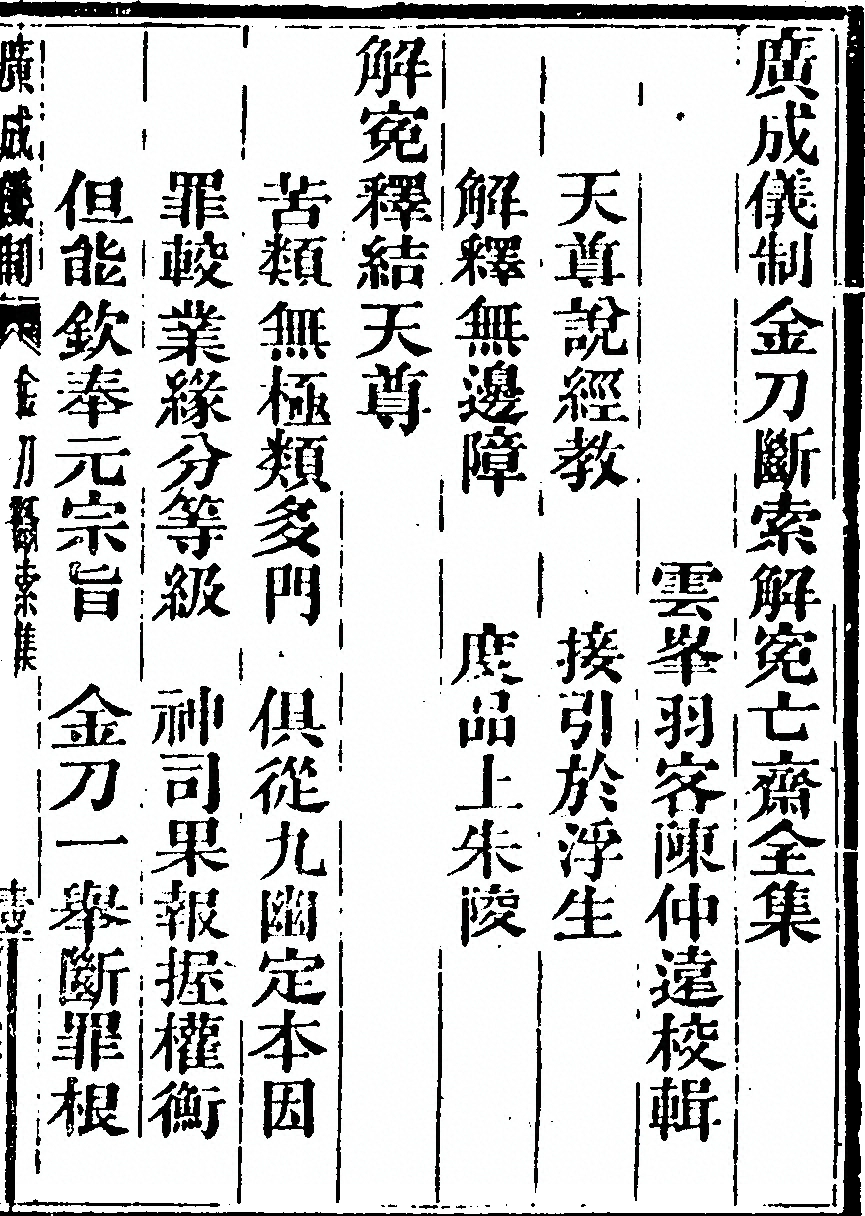 廣成儀制金刀斷索解冤亡齋全集
雲峯羽客陳仲遠校輯
天尊說經教　接引於浮生
解釋無邊障　度品上朱陵
解冤釋結天尊
苦類無極類多門　俱從九幽定本因
罪較業緣分等級　神司果報握權衡
但能欽奉元宗旨　金刀一舉斷罪根
廣成儀制　金刀斷索集　壹